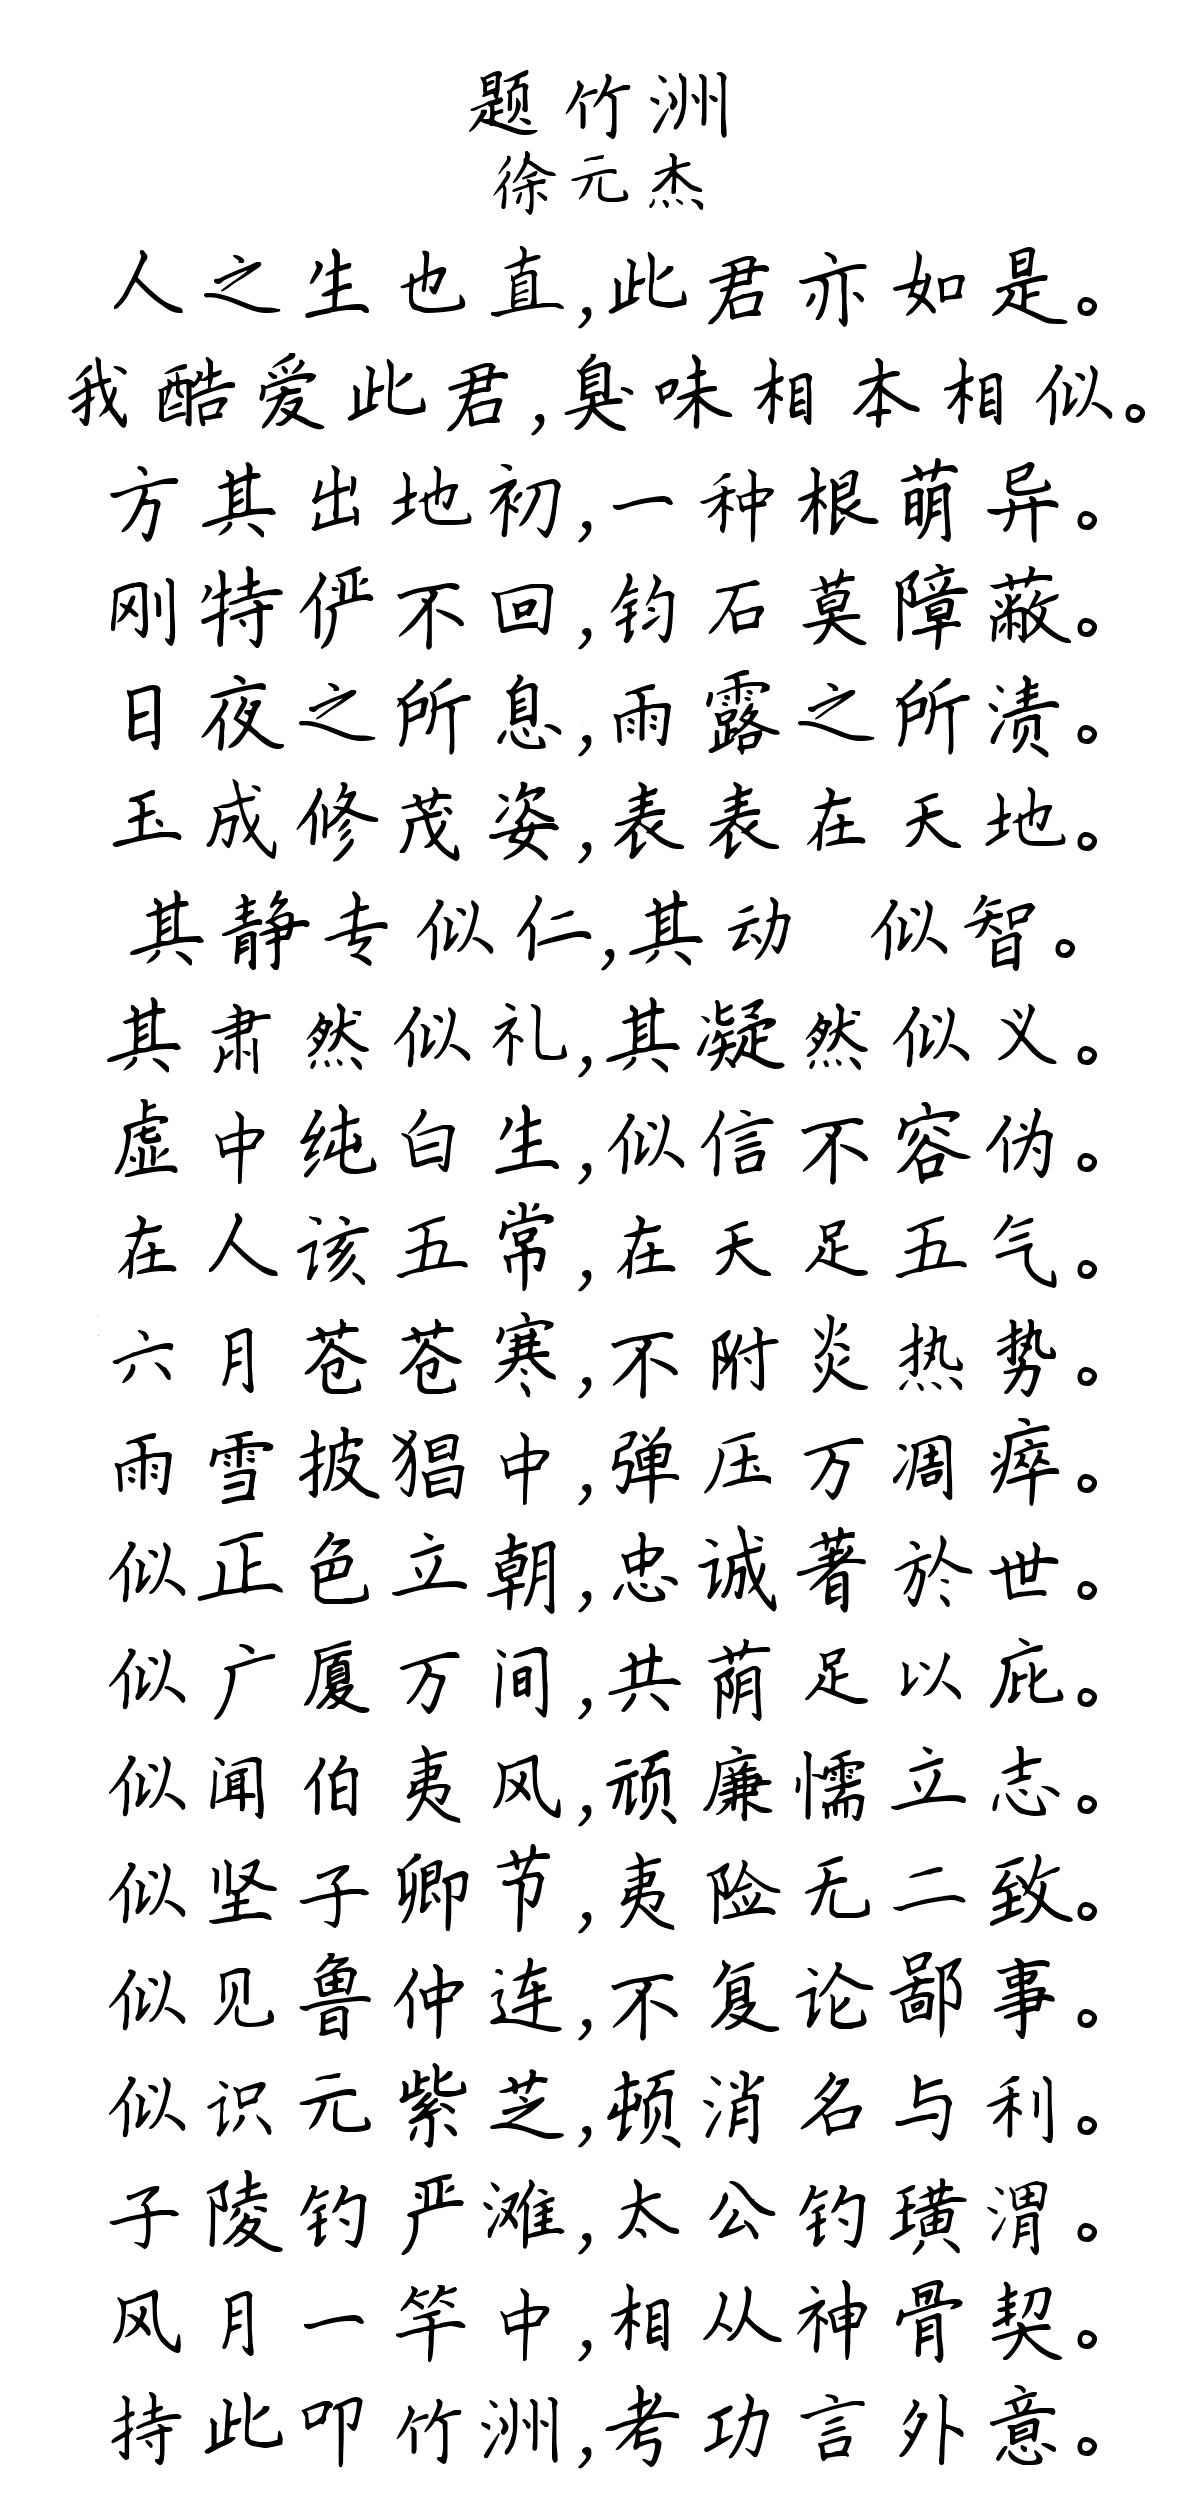 题竹洲
徐元杰
人之生也直,此君亦如是。
我酷爱此君,臭味相本相似。
方其出地初,一种根萌异。
刚特俨不回,钧石莫障蔽。
日夜之所息,雨露之所渍。
王成修茂姿,表表在天地。
其静专似仁,其动 似智。
其肃然似礼,其凝然似义。
虚中纯白生,似信不容伪。
在人该五常,在天足五气。
六月苍苍寒,不附炎热势。
雨雪披猖中,弹压万凋瘁。
似正色立朝,忠诚著于世。
似广厦万间,共荫足以庇。
似闻伯夷风,顽廉懦立志。
似坚子卿节,夷险无二致。
似见鲁仲连,不复论鄙事。
似识元紫芝,顿消名与利。
子陵钓严滩,太公钓璜渭。
风月一竿中,相从神骨契。
持此叩竹洲,老功言外意。